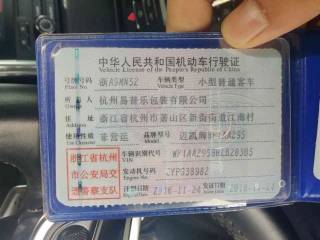 中华人民共和国机动车行驶证
Vehicle License of the People's Republic of China
号牌号码 浙A9MN52 车辆类型 小型普通客车
Plate No. Vehicle Type
所有人 杭州易普乐包装有限公司
Owner
住址 浙江省杭州市萧山区新街街道江南村
Address
使用性质 非营运 品牌型号
Use Character Model
浙江省杭州
市公安局交
通警察支队
车辆识别代号
VIN
发动机号码
Engine No.
注册日期 2016-11-24 发证日期 2016-11-24
Register Date Issue Date